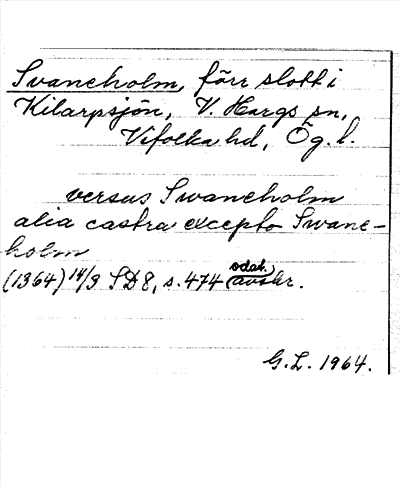 Svaneholm, förr slott i
Kilarpsjön, V. Hargs sn,
Vifolka hd, Ög. l.
versus Swaneholm
alia castra excepto Swane-
holm
(1364) 14/9 SD 8, s. 474 odat. avskr.
G.L. 1964.